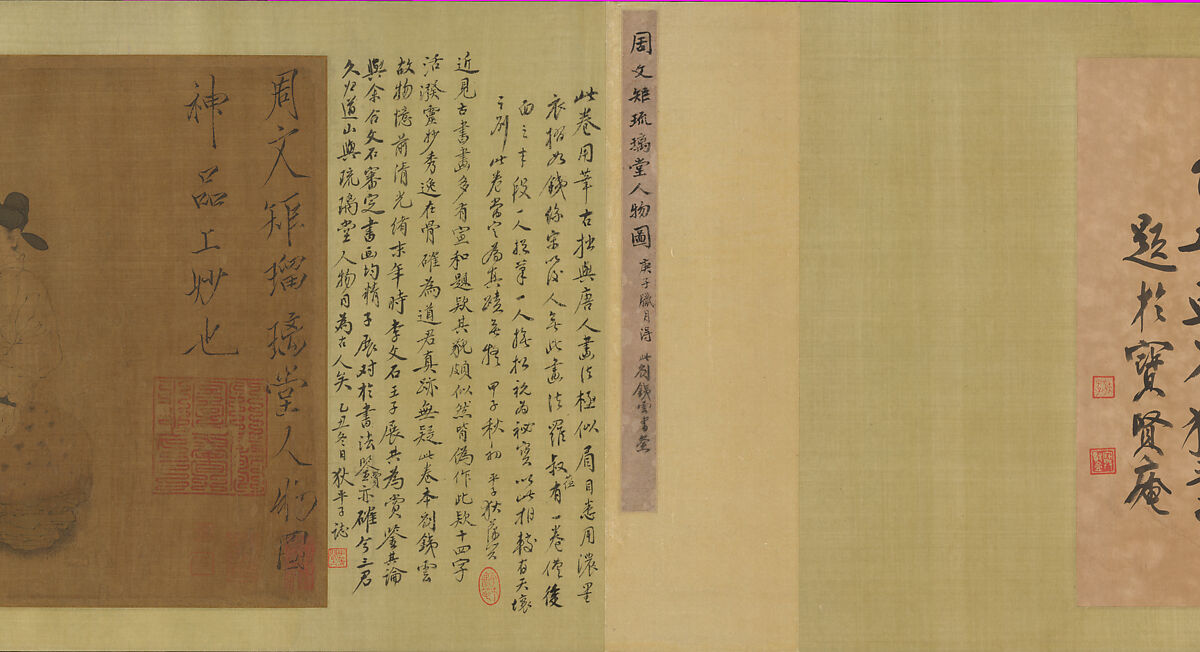 題於寶賢庵
周文矩琉璃堂人物圖 庚子臘月得 此劉鐵雲書簽
此卷用筆古拙與唐人畫法極似眉目悉用濃墨
衣褶如鐵線宋以後人無此畫法羅叔蘊有一卷僅後
面之半段一人按筆一人推招視為祕寶以此相較有天壤
之別此卷當定為真蹟無疑 甲子秋初 平子狄葆賢
近見古書畫多有宣和題款其貌頗似然皆偽作此款十四字
活潑靈妙秀逸在骨確為道君真跡無疑此卷本劉鐵雲
故物憶前清光緒末年時李文石王子展共為賞鑒其論
與余合文石審定書画均精子展对於書法鑒賞亦確今三君
久归道山與琉璃堂人物同為古人矣 乙丑冬日狄平子誌
周文矩瑠璃堂人物圖
神品上妙也